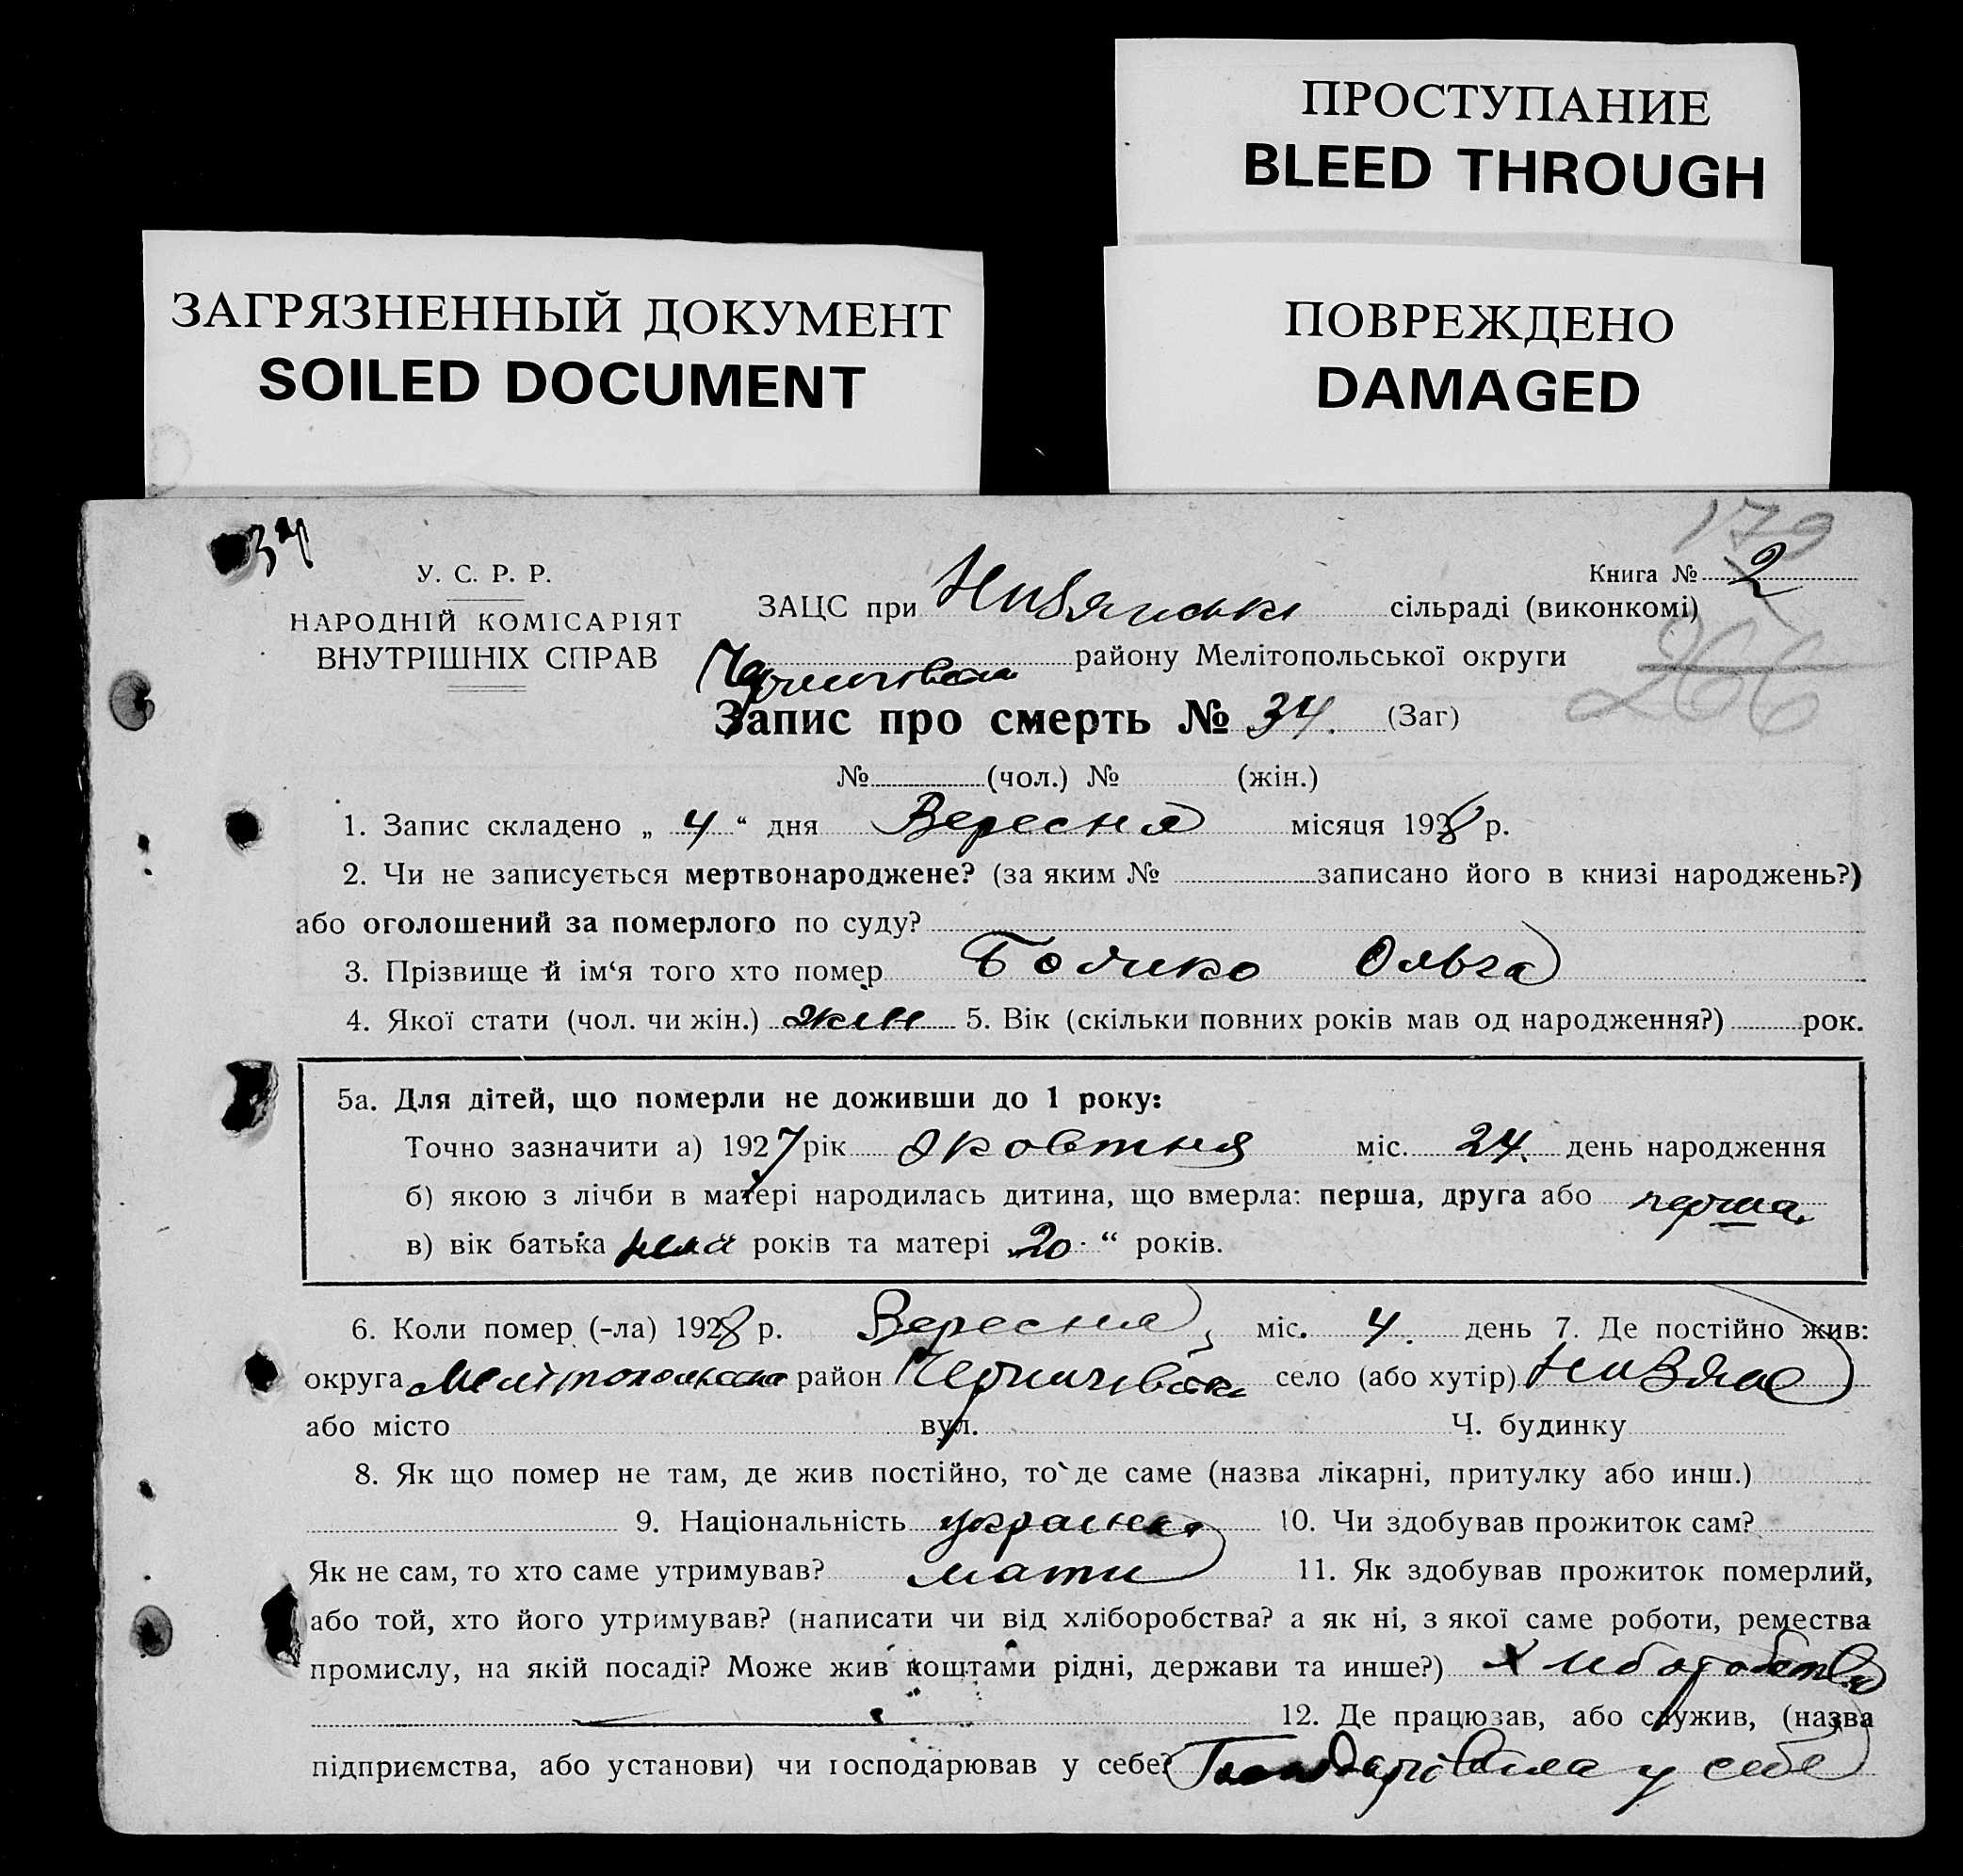 ПРОСТУПАНИЕ
BLEED THROUGH
ЗАГРЯЗНЕННЫЙ ДОКУМЕНТ
SOILED DOCUMENT
ПОВРЕЖДЕНО
DAMAGED
34
179
У. С. Р. Р.
НАРОДНІЙ КОМІСАРІЯТ
ВНУТРІШНІХ СПРАВ
Книга № 2
266
ЗАЦС при сільраді (виконкомі)
району Мелітопольської округи
Запис про смерть № 34. (Заг)
№ (чол.) № (жін.)
1. Запис складено „ 4 “ дня Вересня місяця 1928 р.
2. Чи не записується мертвонароджене? (за яким № записано його в книзі народжень?)
або оголошений за померлого по суду?
3. Прізвище й ім‘я того хто помер Ольга
4. Якої стати (чол. чи жін.) жін 5. Вік (скільки повних років мав од народження?) рок.
5а. Для дітей, що померли не доживши до 1 року:
Точно зазначити а) 1927 рік жовтня міс. 24. день народження
б) якою з лічби в матері народилась дитина, що вмерла: перша, друга або перша
в) вік батька нема років та матері „20“ років.
6. Коли помер (-ла) 1928 р. Вересня міс. 4. день 7. Де постійно жив:
округа Мелітопольська район село (або хутір)
або місто вул. Ч. будинку
8. Як що помер не там, де жив постійно, то де саме (назва лікарні, притулку або инш.)
9. Національність українка 10. Чи здобував прожиток сам?
Як не сам, то хто саме утримував? мати 11. Як здобував прожиток померлий,
або той, хто його утримував? (написати чи від хліборобства? а як ні, з якої саме роботи, ремества
промислу, на якій посаді? Може жив коштами рідні, держави та инше?) хліборобство
12. Де працював, або служив, (назва
підприємства, або установи) чи господарював у себе? Господарювала у себе